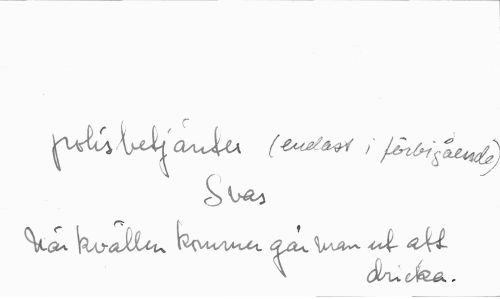 polisbetjänter (endast i förbigående)
Svas
När kvällen kommer går man ut att
dricka.